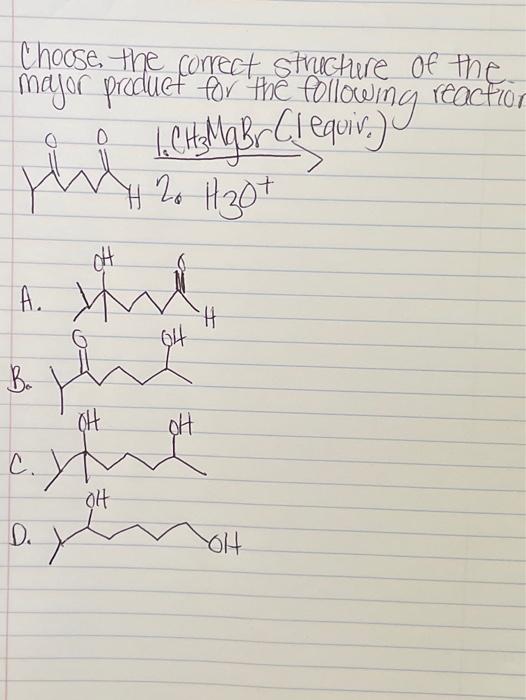 Choose the correct structure of the
major product for the following reaction
O O 1. CH3MgBr (1 equiv.)
H 2. H3O+
OH O
A. H
O OH
B.
OH OH
C.
OH
D. OH